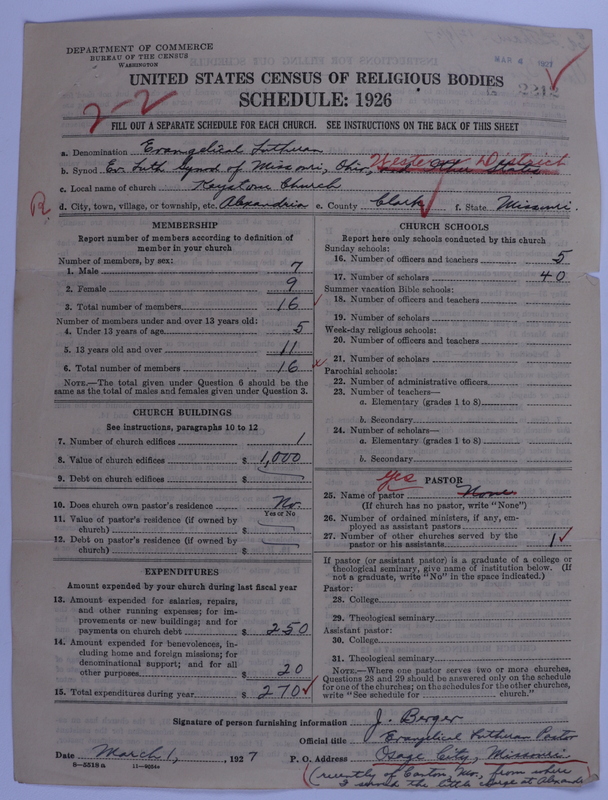 DEPARTMENT OF COMMERCE
BUREAU OF THE CENSUS
WASHINGTON
MAR 4 1927
2312
UNITED STATES CENSUS OF RELIGIOUS BODIES
SCHEDULE: 1926
2-2
FILL OUT A SEPARATE SCHEDULE FOR EACH CHURCH. SEE INSTRUCTIONS ON THE BACK OF THIS SHEET
a. Denomination Evangelical Lutheran
b. Synod Ev. Luth. Synod of Missouri, Ohio, and other States Western District
c. Local name of church Keystone Church
d. City, town, village, or township, etc. Alexandria e. County Clark f. State Missouri.
R
MEMBERSHIP
Report number of members according to definition of member in your church
Number of members, by sex:
1. Male 7
2. Female 9
3. Total number of members 16
Number of members under and over 13 years old:
4. Under 13 years of age 5
5. 13 years old and over 11
6. Total number of members 16
NOTE.—The total given under Question 6 should be the same as the total of males and females given under Question 3.
CHURCH BUILDINGS
See instructions, paragraphs 10 to 12
7. Number of church edifices 1
8. Value of church edifices $ 1,000
9. Debt on church edifices $
10. Does church own pastor's residence No.
Yes or No
11. Value of pastor's residence (if owned by church) $
12. Debt on pastor's residence (if owned by church) $
EXPENDITURES
Amount expended by your church during last fiscal year
13. Amount expended for salaries, repairs, and other running expenses; for improvements or new buildings; and for payments on church debt $ 250
14. Amount expended for benevolences, including home and foreign missions; for denominational support; and for all other purposes $ 20
15. Total expenditures during year $ 270
CHURCH SCHOOLS
Report here only schools conducted by this church
Sunday schools:
16. Number of officers and teachers 5
17. Number of scholars 40
Summer vacation Bible schools:
18. Number of officers and teachers
19. Number of scholars
Week-day religious schools:
20. Number of officers and teachers
21. Number of scholars
Parochial schools:
22. Number of administrative officers
23. Number of teachers—
a. Elementary (grades 1 to 8)
b. Secondary
24. Number of scholars—
a. Elementary (grades 1 to 8)
b. Secondary
Yes
PASTOR
25. Name of pastor None
(If church has no pastor, write "None")
26. Number of ordained ministers, if any, employed as assistant pastors
27. Number of other churches served by the pastor or his assistants 1
If pastor (or assistant pastor) is a graduate of a college or theological seminary, give name of institution below. (If not a graduate, write "No" in the space indicated.)
Pastor:
28. College
29. Theological seminary
Assistant pastor:
30. College
31. Theological seminary
NOTE.—Where one pastor serves two or more churches, Questions 28 and 29 should be answered only on the schedule for one of the churches; on the schedules for the other churches, write "See schedule for church."
Signature of person furnishing information J. Berger
Official title Evangelical Lutheran Pastor
Date March 1, 1927 P. O. Address Osage City, Missouri.
8—5518a 11—9251a
(recently of Canton, Mo., from where I served the little charge at Alexandria)